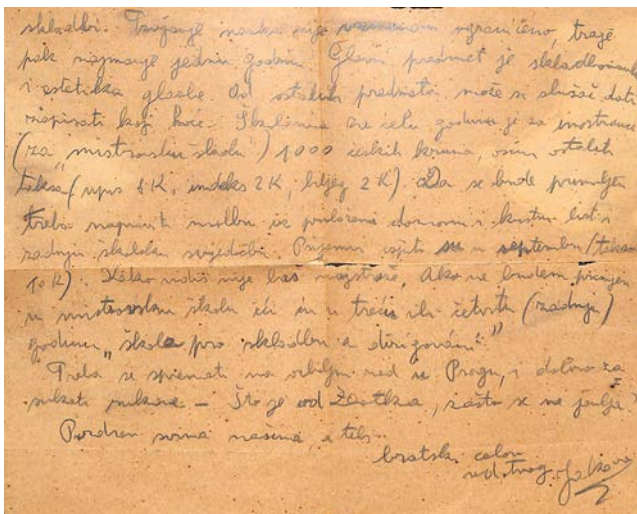 skladbi. Trajanje nauka nije vremenom ograničeno, traje
pak najmanje jednu godinu. Glavni predmet je skladbovanje
i estetika glazbe. Od ostalih predmeta može si slušač dati
zapisati koji hoće. Školarina za celu godinu je za inostrance
(za „mistrovsku školu") 1000 čeških kruna, osim ostalih
taksa (upis 8K, indeks 2K, biljeg 2K). Da se bude primljen
treba napisati molbu uz priloženi domovni i krsni list i
zadnju školsku svjedodžbu. Prijemni ispiti su u septembru (taksa
10 K). Kako vidiš nije baš najstrože. Ako ne budem primljen
u mistrovsku školu ići ću u treću ili četvrtu (zadnju)
godinu „škola pro skladbu a dirigování."
Treba se spremati na ozbiljni rad u Pragu, i dobro za
sukati rukave. — Što je od Zlatka, zašto se ne javlja?
Pozdrav svima našima, a tebi
bratski celov